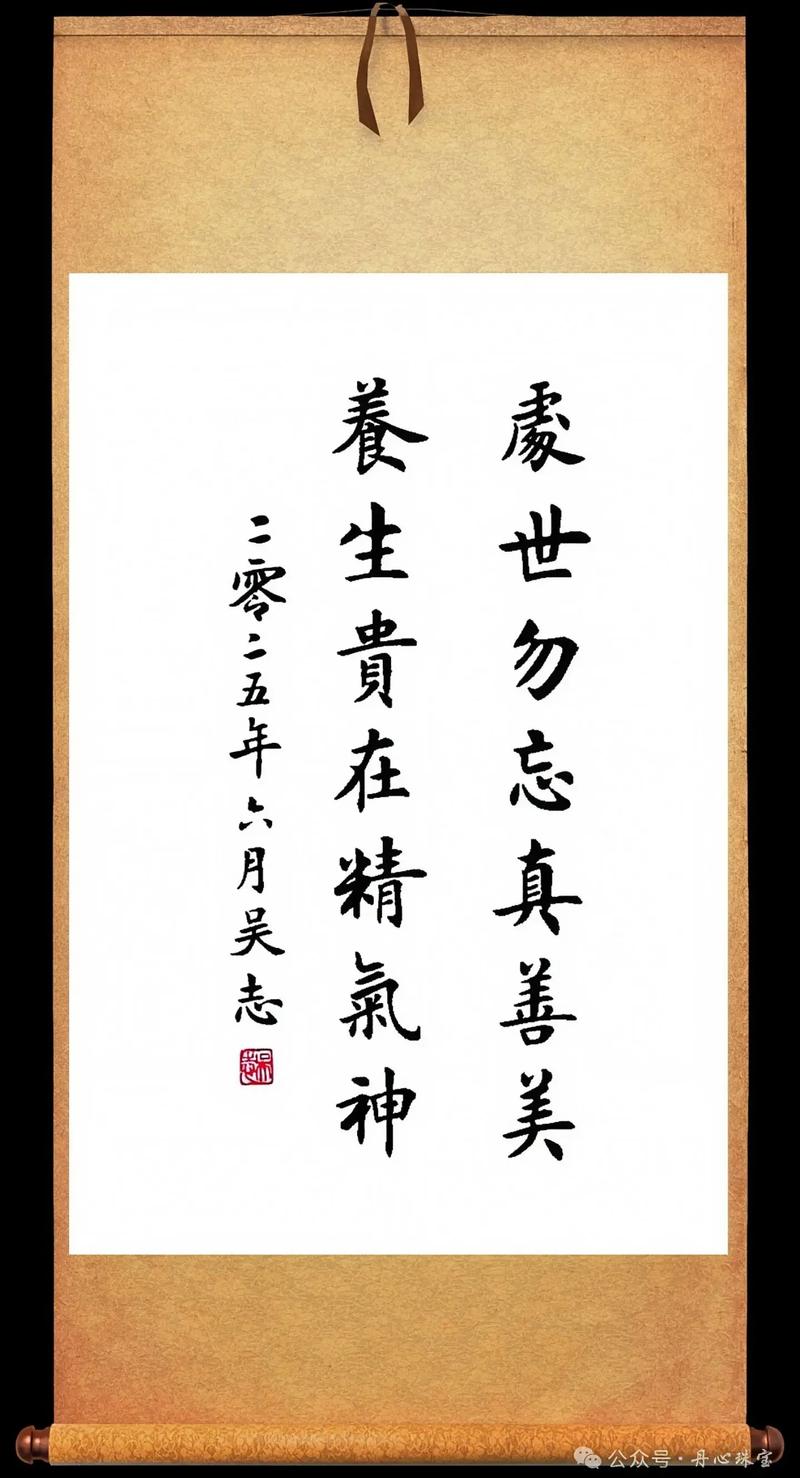 處世勿忘真善美
養生貴在精氣神
二零二五年六月吴志
吴志
公众号·丹心珠宝